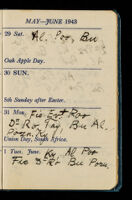 MAY—JUNE 1943
29 Sat. Al. Por, Bu
Oak Apple Day.
30 SUN.
5th Sunday after Easter.
31 Mon. Fic Est Por
Dr Ro, Tay, Bu Al.
Porn. Ky
Union Day, South Africa.
1 Tues. June. Ky. Al Por
Fic Dr Rr Bu Porn.